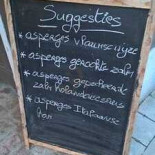 Suggesties
* asperges vlaamse wijze
* asperges gerookte zalm
* asperges gepocheerde
zalm hollandaisesaus
* asperges Italiaanse
Ham